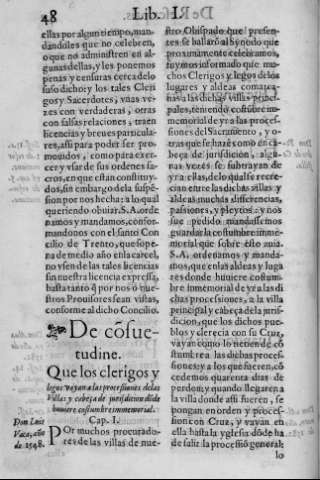 48
Lib. I.
ellas por algun tiempo, man-
dandoles que no celebren,
o que no administren en al-
gunas dellas, y les ponemos
penas y censuras cerca de lo
suso dicho: y los tales Cleri
gos y Sacerdotes, vnas ve-
zes con verdaderas, otras
con falsas relaciones, traen
licencias y breues particula-
res, assi para poder ser pro-
mouidos, como para exer-
cer y vsar de sus ordenes sa-
cros, en que estan constituy-
dos, sin embargo de la suspē-
sion por nos hecha: a lo qual
queriendo obuiar. S. A. orde
namos y mandamos, confor-
mandonos con el santo Con
cilio de Trento, que so pe-
na de medio año en la carcel,
no vsen de las tales licencias
sin nuestra licencia expressa,
hasta tanto q̃ por nos o nue-
stros Prouisores sean vistas,
conforme al dicho Concilio.
De cōsue-
tudine.
Que los clerigos y
legos vayan a las procesiones de las
Villas y cabeça de jurisdicion dōde
huuiere costumbre inmemorial.
Cap. I.
Don Luis
Vaca, año
de 1548.
POr muchos procurado-
res de las villas de nue-
stro Obispado que presen-
tes se hallarō al Synodo que
proximamente celebramos,
fuymos informado que mu-
chos Clerigos y legos de los
lugares y aldeas comarca-
nas a las dichas villas princi-
pales, teniendo costūbre in-
memorial de yr a las proces-
siones del Sacramento, y o-
tras que se harē como en ca-
beça de jurisdicion, algu-
nas vezes se subtrayan de
yr a ellas, de lo qual se recre-
cian entre las dichas villas y
aldeas muchas differencias,
passiones, y pleytos: y nos
fue pedido mandassemos
guardar la costumbre inme-
morial que sobre esto auia.
S. A. ordenamos y manda-
mos, que en las aldeas y luga
res donde huuiere costum-
bre inmemorial de yr a las di
chas processiones, a la villa
principal y cabeça de la juris-
dicion, que los dichos pue-
blos y clerecia con su Cruz,
vayan como lo tienen de co
stumbre a las dichas proces-
siones: y a los que fueren, cō
cedemos quarenta dias de
perdon: y quando llegaren a
la villa donde assi fueren, se
pongan en orden y proces-
sion con Cruz, y vayan en
ella hasta la yglesia dōde ha
de salir la processió general:
lo